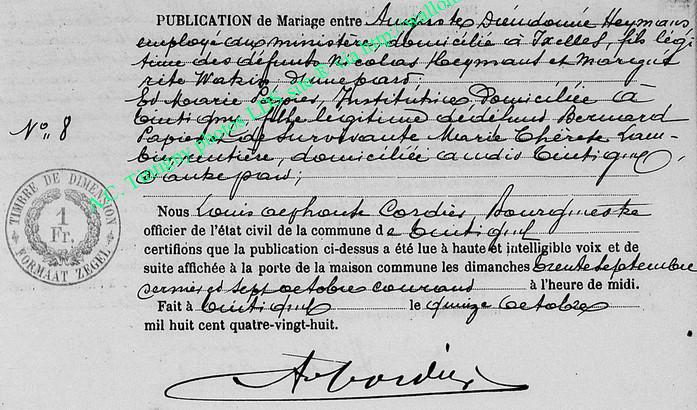 PUBLICATION de Mariage entre Auguste Dieudonné Heymans,
employé au ministère, domicilié à Ixelles, fils légi
time des défunts Nicolas Heymans et Margué
rite Watrin d'une part.
Et Marie Papier, Institutrice, Domiciliée à
Tintigny fille légitime de défunt Bernard
Papier & de survivante Marie Thérèse Lam
rentière, domiciliée audit Tintigny,
d'autre part;
N° 8
TIMBRE DE DIMENSION
1
Fr.
FORMAAT ZEGEL
Nous Louis Alphonse Cordier, Bourgmestre
officier de l'état civil de la commune de Tintigny
certifions que la publication ci-dessus a été lue à haute et intelligible voix et de
suite affichée à la porte de la maison commune les dimanches trente septembre
dernier et sept octobre courant à l'heure de midi.
Fait à Tintigny le quinze octobre
mil huit cent quatre-vingt-huit.
A Cordier
A.C. Tintigny photos via http://